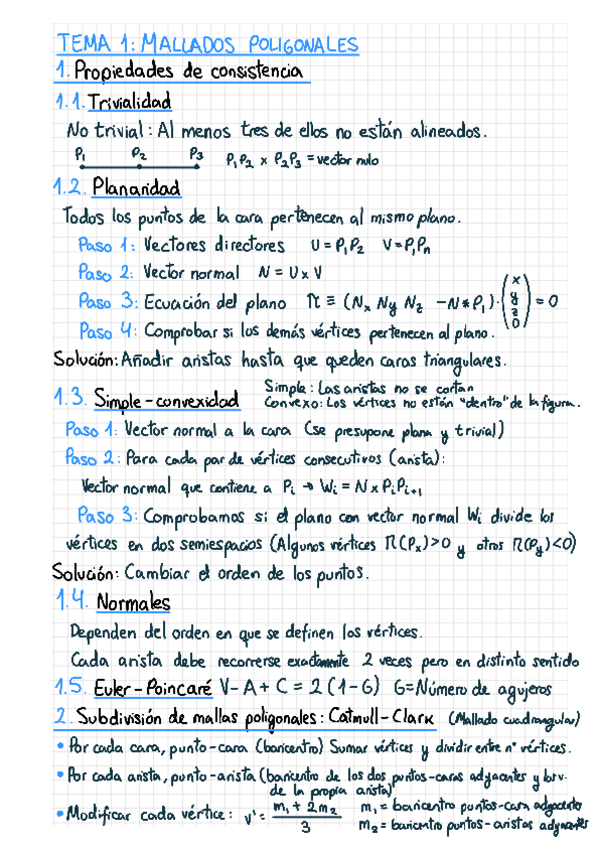 TEMA 1: MALLADOS POLIGONALES
1. Propiedades de consistencia
1.1. Trivialidad
No trivial: Al menos tres de ellos no están alineados.
P₁ P₂ P₃ P₁P₂ x P₂P₃ = vector nulo
1.2. Planaridad
Todos los puntos de la cara pertenecen al mismo plano.
Paso 1: Vectores directores U = P₁P₂ V = P₁Pₙ
Paso 2: Vector normal N = U x V
Paso 3: Ecuación del plano π ≡ (Nx Ny Nz -N*P₁)·(x y z 0) = 0
Paso 4: Comprobar si los demás vértices pertenecen al plano.
Solución: Añadir aristas hasta que queden caras triangulares.
1.3. Simple-convexidad
Simple: Las aristas no se cortan
Convexo: Los vértices no están "dentro" de la figura.
Paso 1: Vector normal a la cara (se presupone plana y trivial)
Paso 2: Para cada par de vértices consecutivos (arista):
Vector normal que contiene a Pi → Wi = N x PiPi+1
Paso 3: Comprobamos si el plano con vector normal Wi divide los
vértices en dos semiespacios (Algunos vértices π(Px)>0 y otros π(Py)<0)
Solución: Cambiar el orden de los puntos.
1.4. Normales
Dependen del orden en que se definen los vértices.
Cada arista debe recorrerse exactamente 2 veces pero en distinto sentido
1.5. Euler-Poincaré V-A+C = 2(1-G) G=Número de agujeros
2. Subdivisión de mallas poligonales: Catmull-Clark (Mallado cuadrangular)
• Por cada cara, punto-cara (baricentro) Sumar vértices y dividir entre nº vértices.
• Por cada arista, punto-arista (baricentro de los dos puntos-caras adyacentes y
de la propia arista)
• Modificar cada vértice: v' = (m₁ + 2m₂)/3 m₁ = baricentro puntos-cara adyacente
m₂ = baricentro puntos-aristas adyacentes